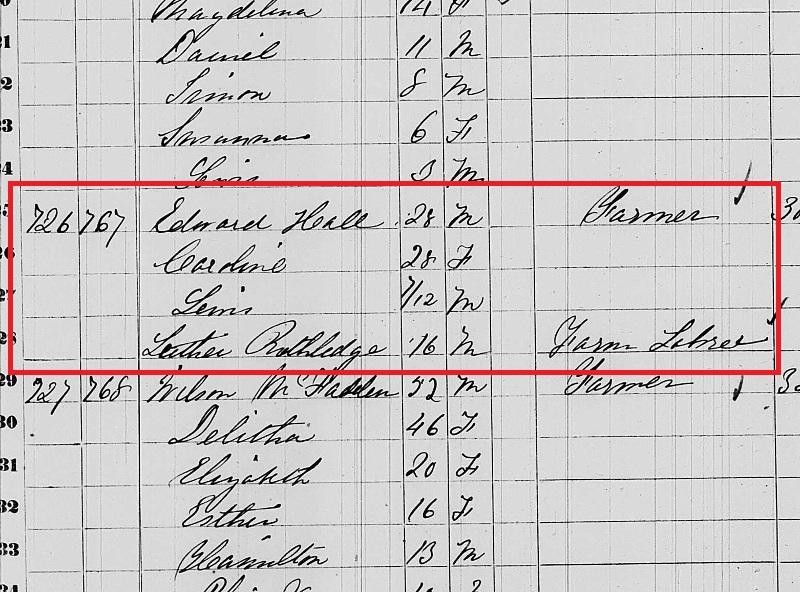 Magdelina 14 F
21 Daniel 11 M
22 Simon 8 M
23 Susanna 6 F
24 Lewis 3 M
25 726 767 Edward Hall 28 M Farmer
26 Caroline 28 F
27 Lewis 7/12 M
28 Luther Ruthledge 16 M Farm Labrer
29 727 768 Wilson McFadden 52 M Farmer
30 Delitha 46 F
31 Elizabeth 20 F
32 Esther 16 F
33 Hamilton 13 M
34